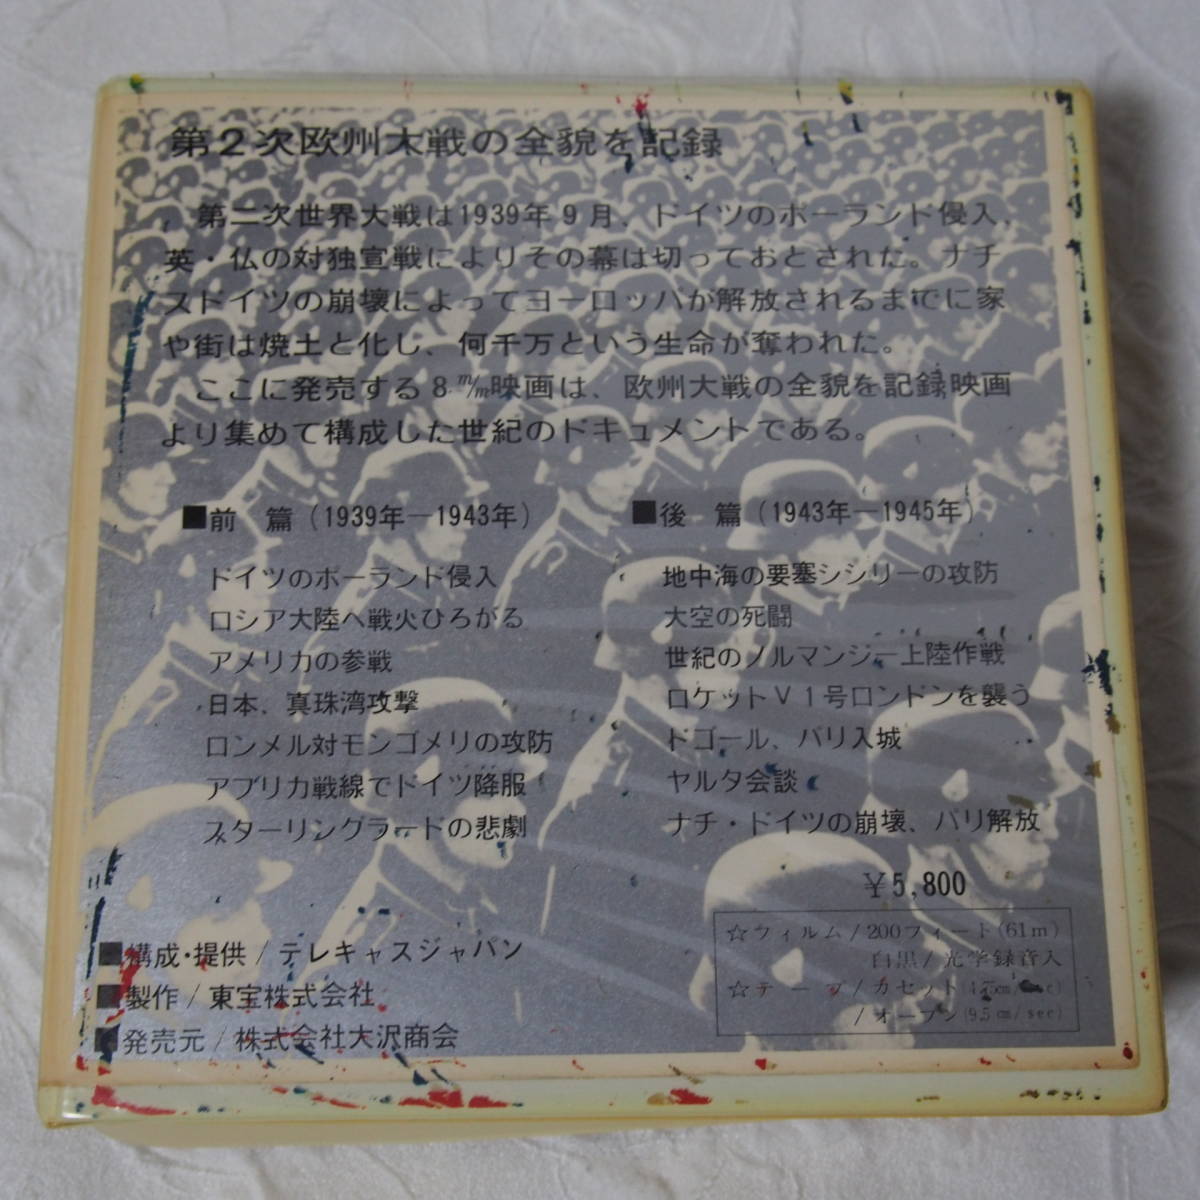 第2次欧州大戦の全貌を記録
第二次世界大戦は1939年9月、ドイツのポーランド侵入、
英・仏の対独宣戦によりその幕は切っておとされた。ナチ
ストイツの崩壊によってヨーロッパが解放されるまでに家
や街は焼土と化し、何千万という生命が奪われた。
ここに発売する8m/m映画は、欧州大戦の全貌を記録映画
より集めて構成した世紀のドキュメントである。
■前 篇(1939年―1943年)
ドイツのポーランド侵入
ロシア大陸へ戦火ひろがる
アメリカの参戦
日本、真珠湾攻撃
ロンメル対モンゴメリの攻防
アフリカ戦線でドイツ降服
スターリングラードの悲劇
■後 篇(1943年―1945年)
地中海の要塞シシリーの攻防
大空の死闘
世紀のノルマンジー上陸作戦
ロケットV1号ロンドンを襲う
ドゴール、パリ入城
ヤルタ会談
ナチ・ドイツの崩壊、パリ解放
¥5,800
☆フィルム/200フィート(61m)
白黒/光学録音入
☆テープ/カセット(4.75cm/sec)
/オープン(9.5cm/sec)
■構成・提供/テレキャスジャパン
■製作/東宝株式会社
■発売元/株式会社大沢商会